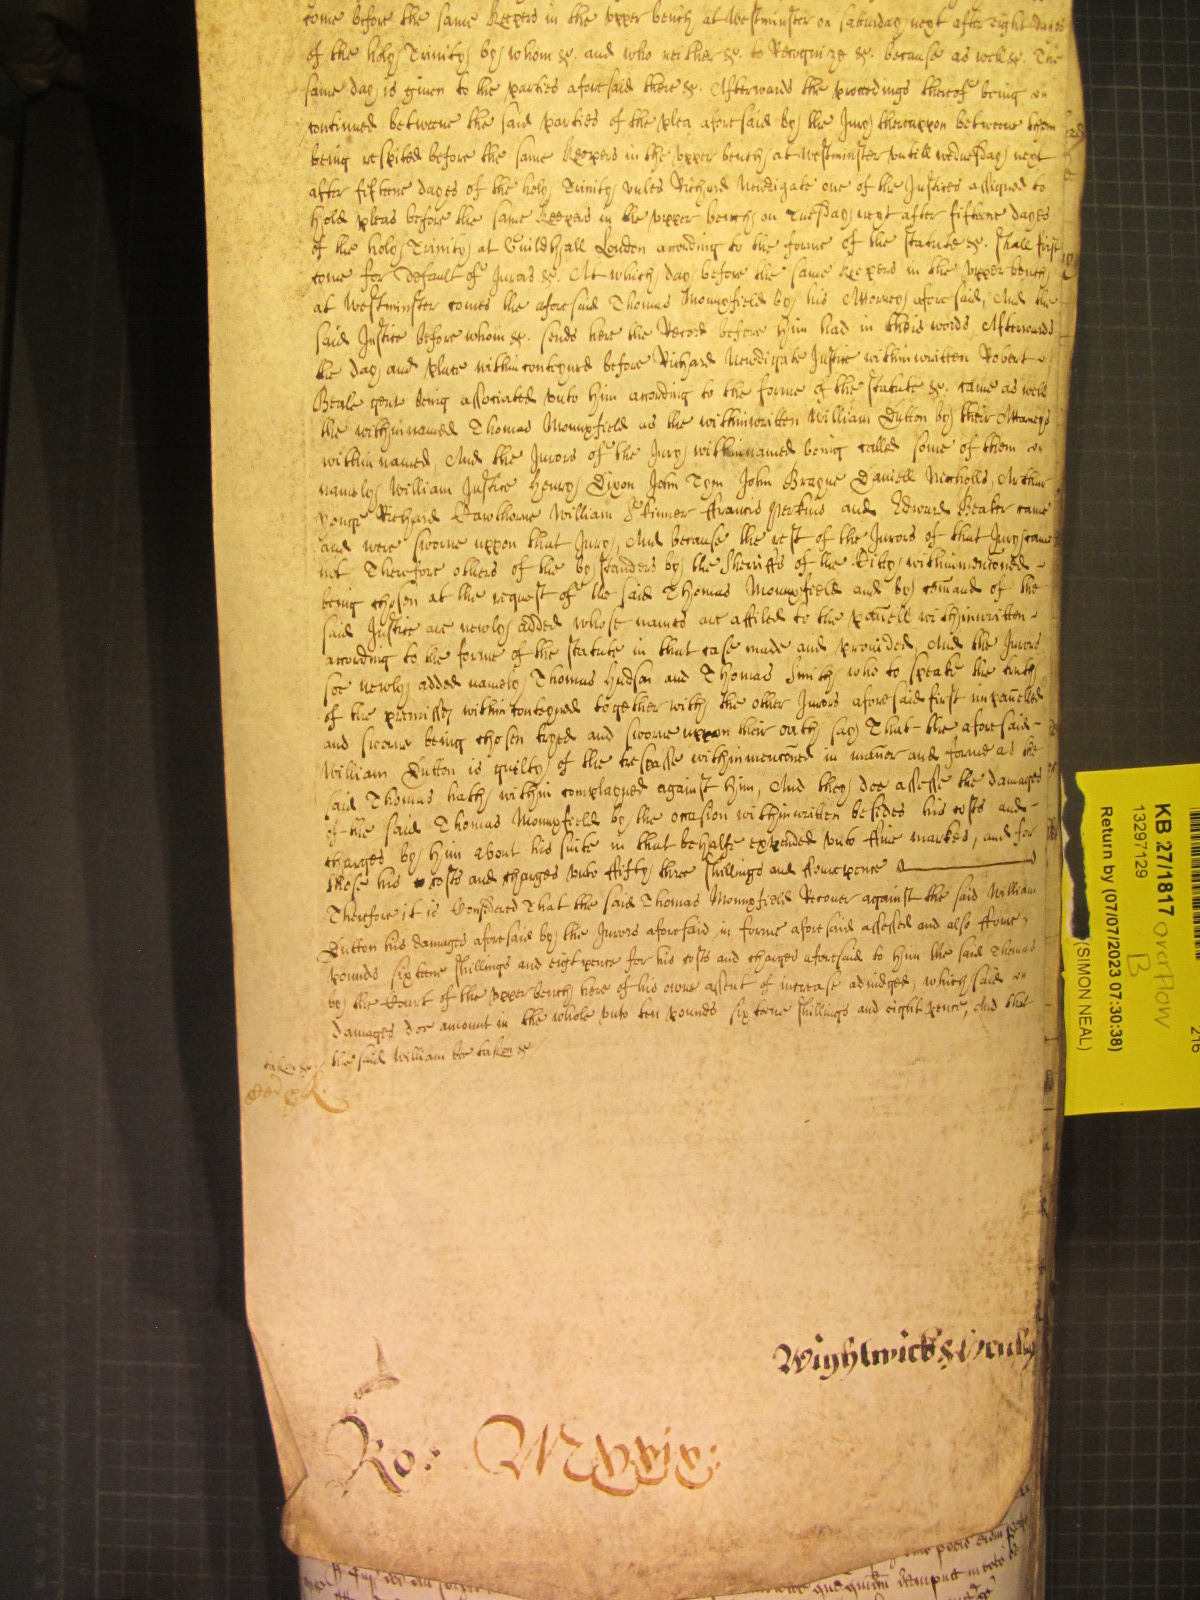 come before the same Keepers in the vpper bench at Westminster on Saturday next after eight dayes
of the holy Trinity by whom &c. and who neither &c. to Recognize &c. because as well &c. The
same day is given to the parties aforesaid there &c. Afterwards the proceedings thereof being
continued betweene the said parties of the plea aforesaid by the Jury therevppon betweene them
being respited before the same Keepers in the vpper bench at Westminster vntill wednesday next
after fifteene dayes of the holy Trinity vnles Richard Newdigate one of the Justices assigned to
hold pleas before the same Keepers in the vpper bench on Tuesday next after fifteene dayes
of the holy Trinity at Guildhall London according to the forme of the statute &c. shall first
come for Default of Jurors &c. At which day before the same Keepers in the vpper bench
at Westminster comes the aforesaid Thomas Mounxfield by his Attorney aforesaid, And the
said Justice before whom &c. sends here the Record before him had in theis words, Afterwards
the day and place within conteyned before Richard Newdigate Justice within written Robert
Beale gent being associated vnto him according to the forme of the statute &c. came as well
the withinnamed Thomas Mounxfield as the withinwritten William Dutton by their Attorneys
within named, And the Jurors of the Jury withinnamed being called some of them
namely William Justice Henry Dixon John Tym John Brayne Daniell Nicholls, Arthur
yonge Richard Hawthorne William Skinner ffrancis Perkins and Edward Beaker came
and were sworne vppon that Jury, And because the rest of the Jurors of that Jury came
not Therefore others of the by standers by the Sheriffs of the Citty withinmenc̄oned
being chosen at the request of the said Thomas Mounxfield and by com̄aund of the
said Justice are newly added whose names are affiled to the pan̄ell withinwritten
according to the forme of the statute in that case made and provided, And the Jurors
soe newly added namely Thomas Hudson and Thomas Smith who to speake the truth
of the premisses within conteyned together with the other Jurors aforesaid first impan̄elled
and sworne being chosen tryed and sworne vppon their oath say That the aforesaid
William Dutton is guilty of the trespasse withinmenc̄oned in man̄er and forme as the
said Thomas hath within complayned against him, And they doe assesse the damages
of the said Thomas Mounxfield by the occasion withinwritten besides his costs and
charges by him about his suite in that behalfe expended vnto ffive markes, and for
those his costs and charges vnto ffifty three shillings and fourepence
Therefore it is Considered That the said Thomas Mounxfield Recover against the said William
Dutton his damages aforesaid by the Jurors aforesaid in forme aforesaid assessed and also ffoure
pounds sixteene shillings and eight pence for his costs and charges aforesaid to him the said Thomas
by the Court of the vpper bench here of his owne assent of increase adiudged, which said
damages doe amount in the whole vnto ten pounds sixteene shillings and eight pence, And that
the said William bee taken &c
taken &c.
Wightwick &
Ro:
KB 27/1817 overflow
B
13297129
Return by (07/07/2023 07:30:38)
(SIMON NEAL)
216